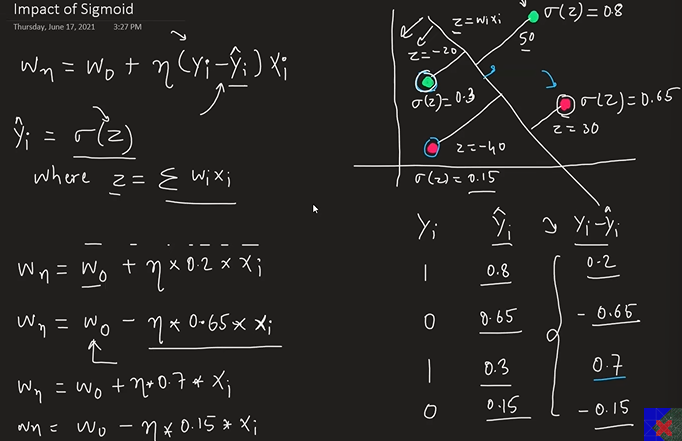 Impact of Sigmoid
Thursday, June 17, 2021 3:27 PM
wη = w0 + η(yi-ŷi)xi
ŷi = σ(z)
where z = Σ wixi
wη = w0 + η×0.2×xi
wη = w0 - η*0.65*xi
wη = w0 + η*0.7*xi
wη = w0 - η*0.15*xi
z=wixi
σ(z)=0.8
50
z=-20
σ(z)=0.3
σ(z)=0.65
z=30
z=-40
σ(z)=0.15
yi ŷi → yi-ŷi
1 0.8 0.2
0 0.65 -0.65
1 0.3 0.7
0 0.15 -0.15